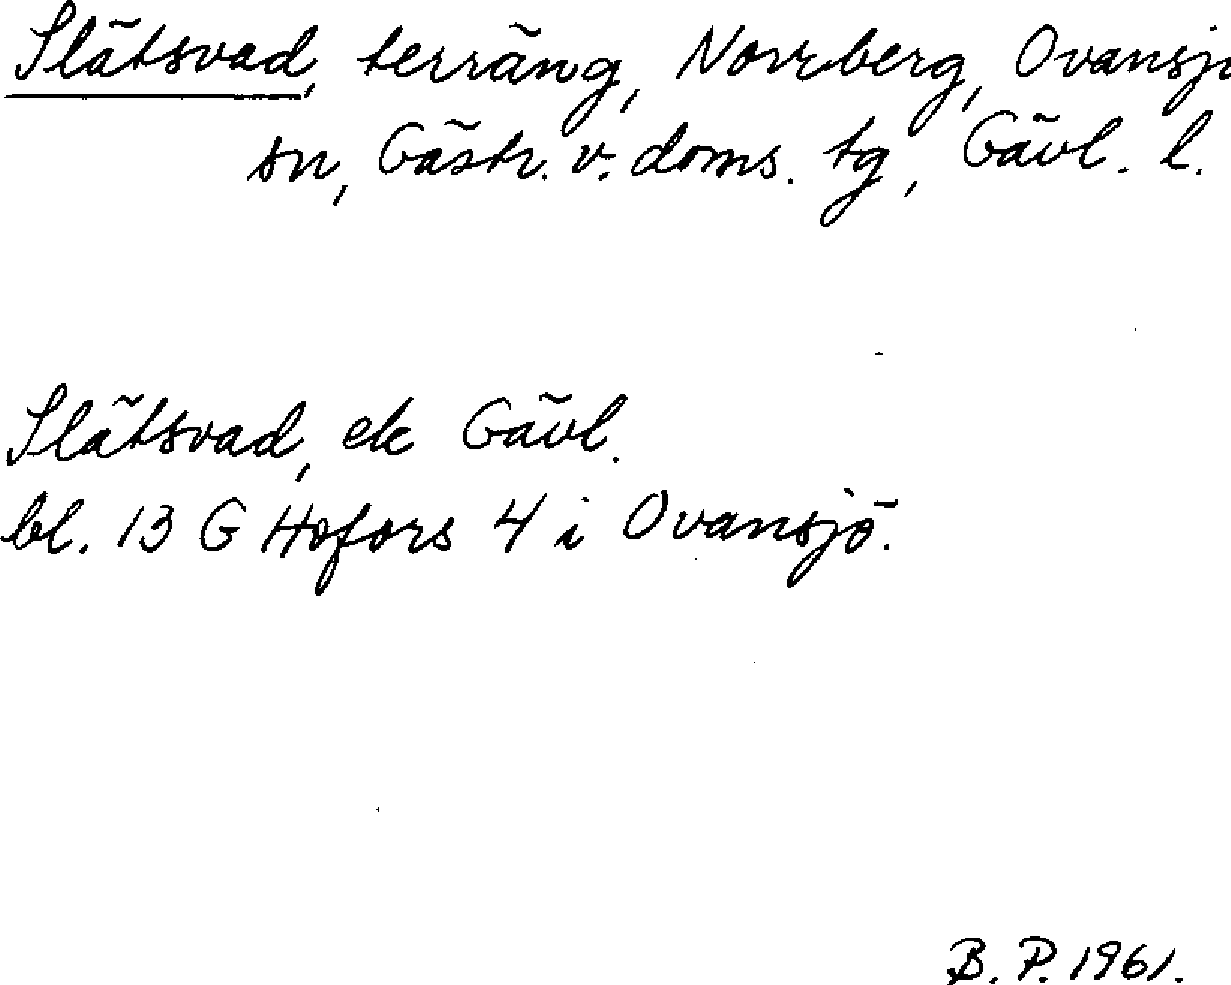 Slätsvad, terräng, Norrberg, Ovansjö
sn, Gästr. v. doms. tg, Gävl. l.
Slätsvad, ek Gävl.
bl. 13 G Hofors 4 i Ovansjö.
B. P. 1961.